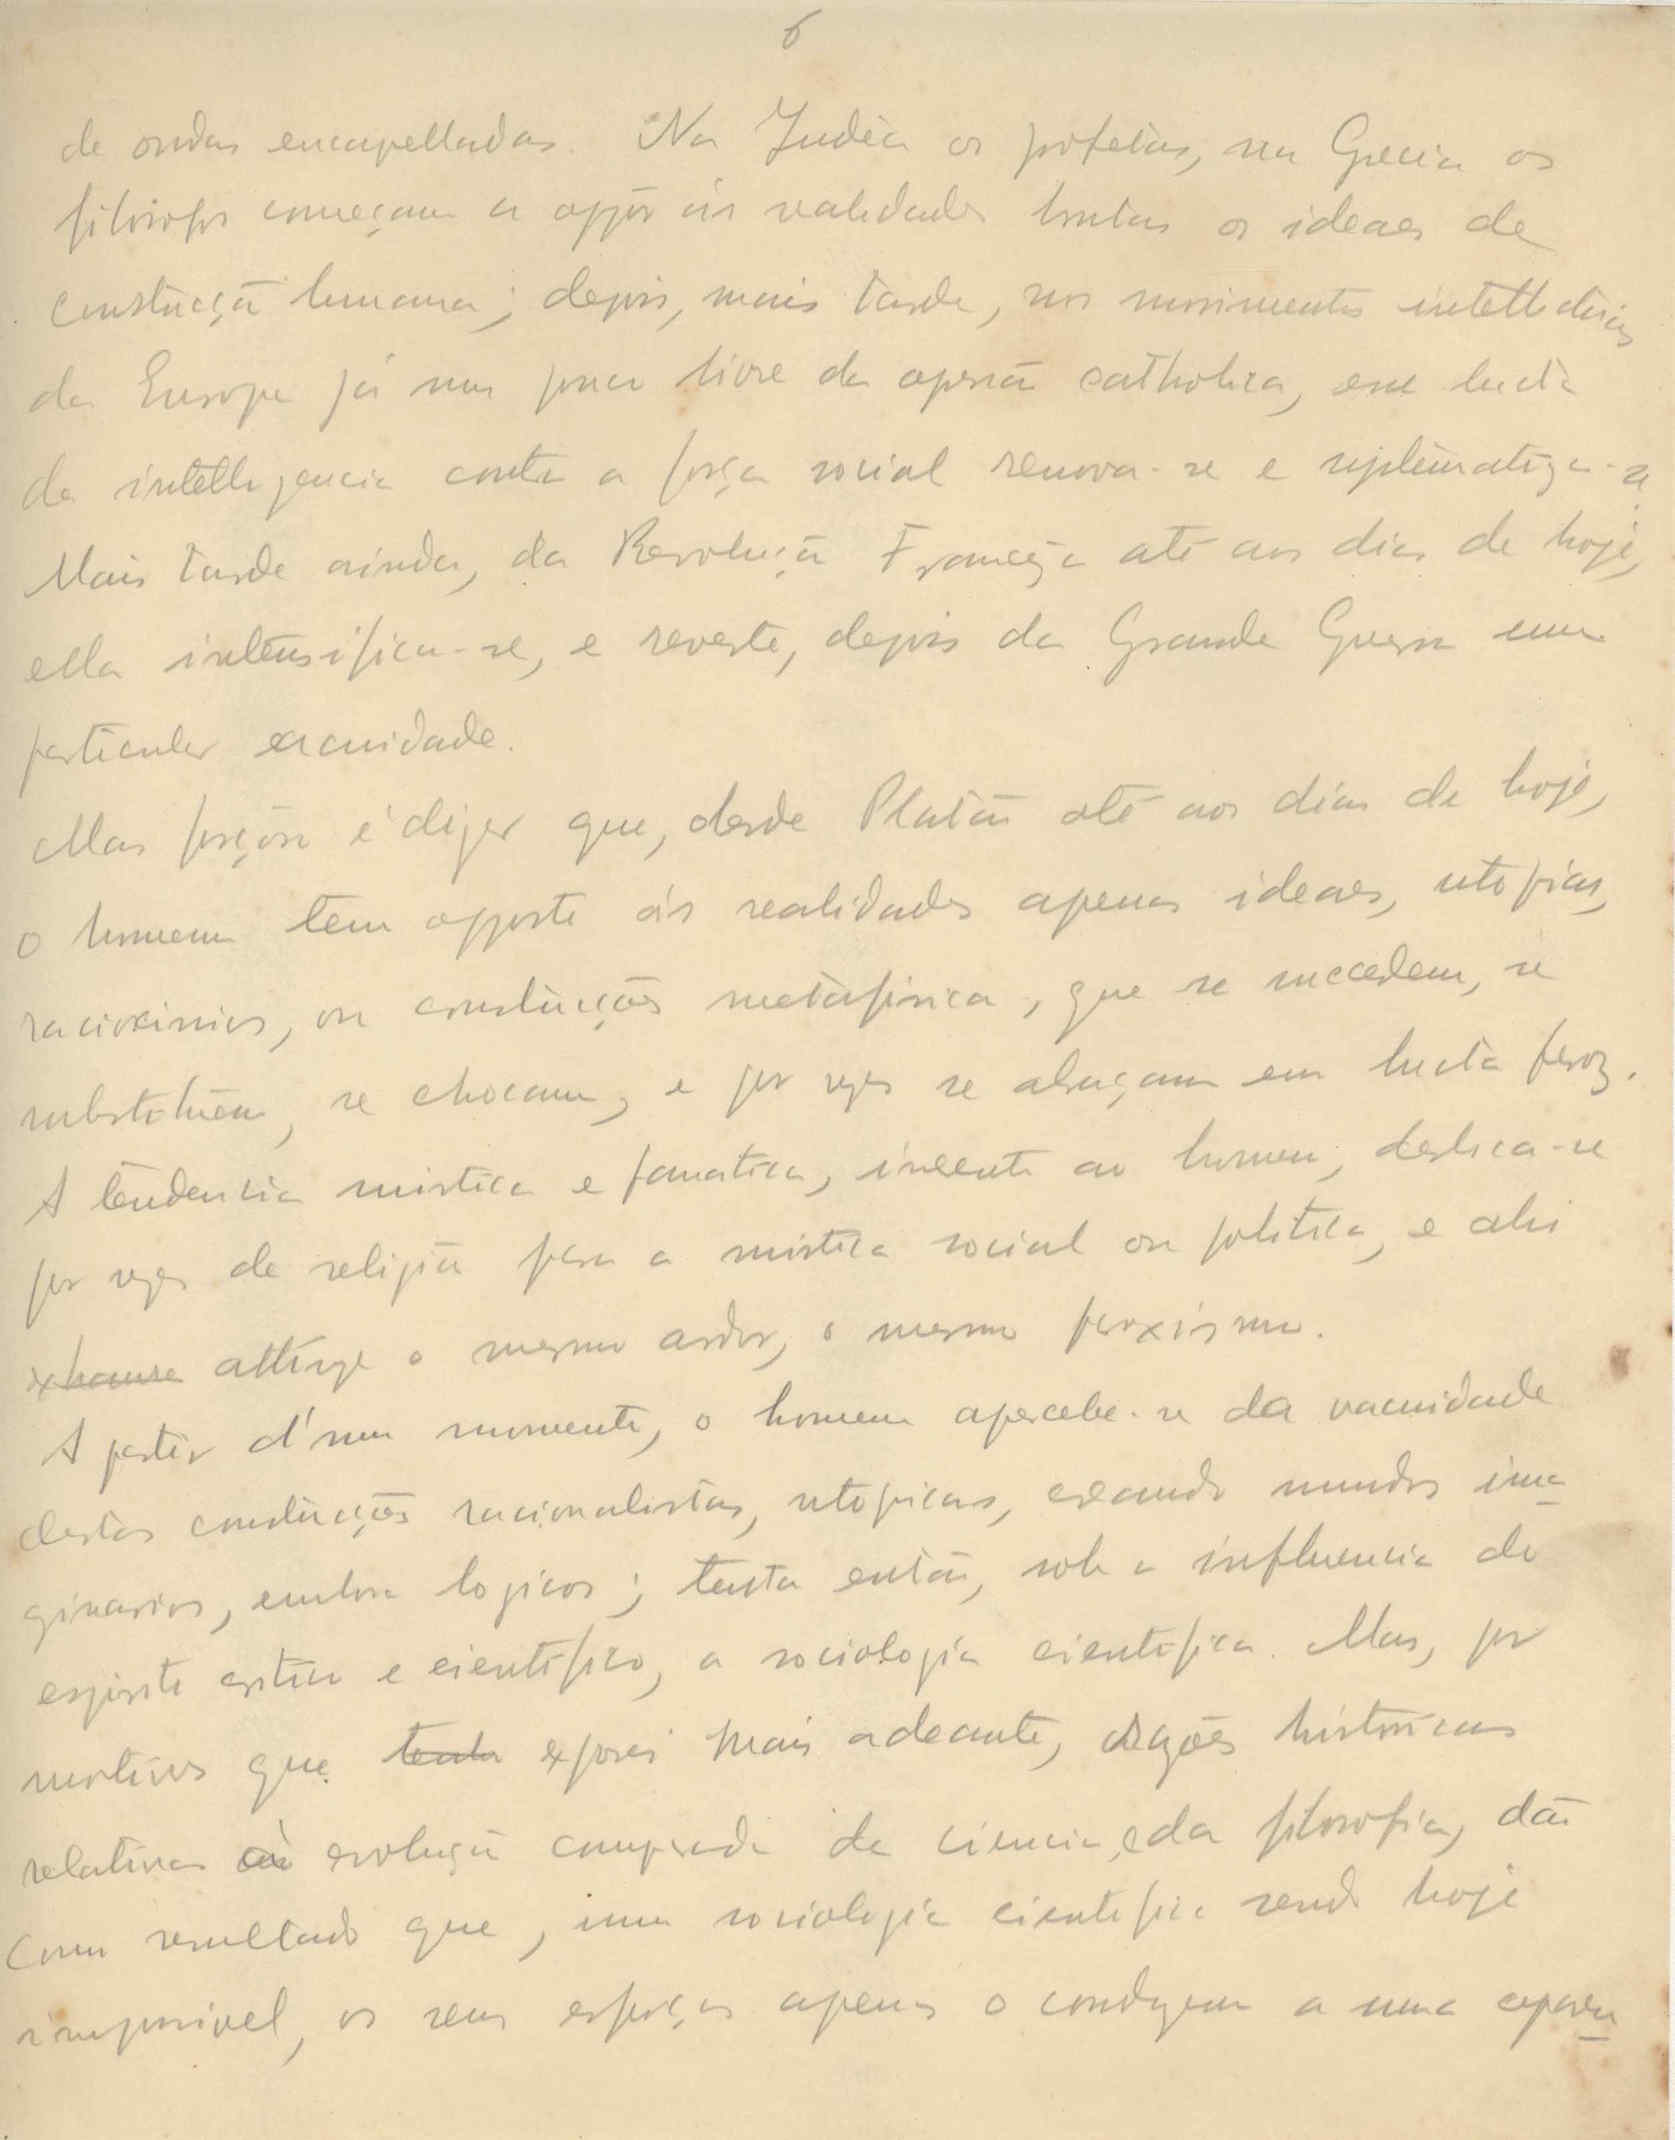 6
de ondas encapelladas. Na Judéa os profetas, na Grecia os
filosofos começam a oppôr ás realidades brutas os ideaes de
construcção humana; depois, mais tarde, nos movimentos intellectuais
da Europa já um pouco livre da opressão catholica, essa lucta
da intelligencia contra a força social renova-se e systematiza-se
Mais tarde ainda, da Revolução Franceza até aos dias de hoje,
ella intensifica-se, e reveste, depois da Grande Guerra uma
particular acuidade.
Mas forçoso é dizer que, desde Platão até aos dias de hoje,
o homem tem opposto ás realidades apenas ideaes, utopias,
raciocinios, ou construcções metafisicas, que se succedem, se
substituem, se chocam, e por vezes se abraçam em lucta feroz.
A tendencia mistica e fanatica, inerente ao homem, desloca-se
por vezes da religião para a mistica social ou politica, e ahi
attinge o mesmo ardor, o mesmo paroxismo.
A partir d'um momento, o homem apercebe-se da vacuidade
destas construcções racionalistas, utopicas, creando mundos ima
ginarios, embora logicos; tenta então, sob a influencia do
espirito critico e cientifico, a sociologia cientifica. Mas, por
motivos que tenta exporei mais adeante, razões historicas
relativas á evolução comparada da ciencia, e da filosofia, dão
como resultado que, uma sociologia cientifica sendo hoje
impossivel, os seus esforços apenas o conduzem a uma aparen